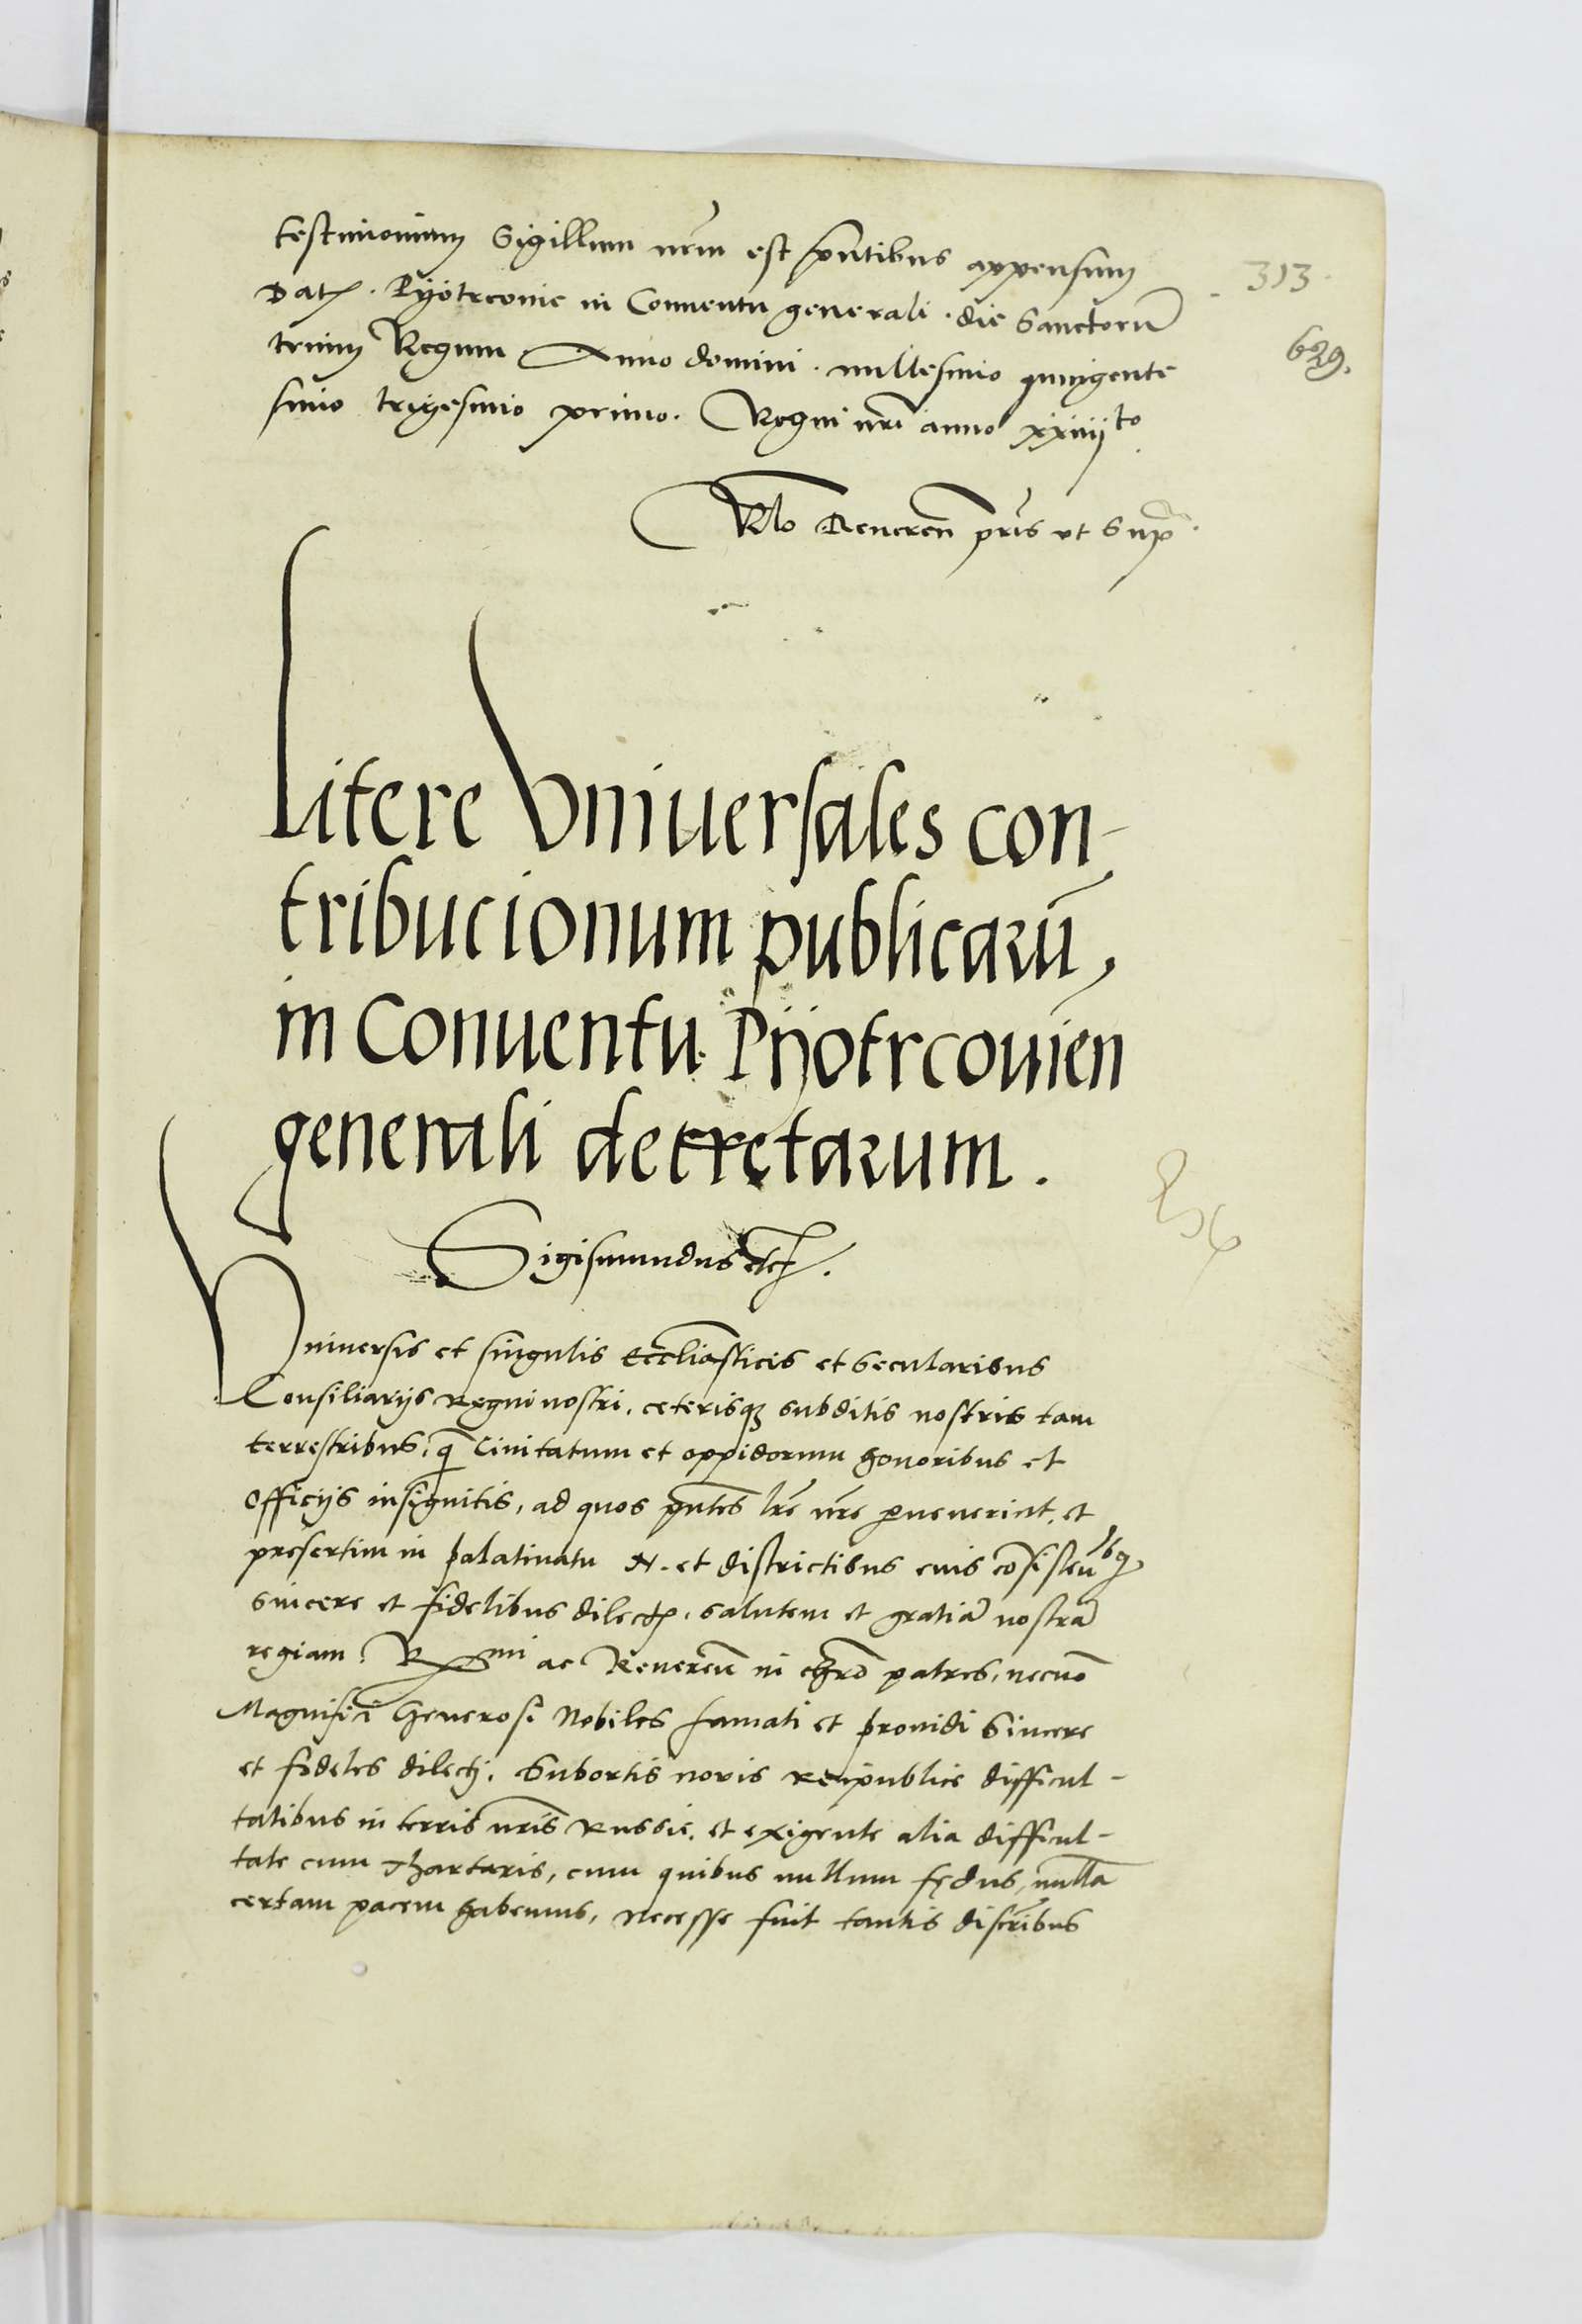 testimonium Sigillum nrm̃ est pñtibus appensum
313
Dat. Pyotrcovie in Conventu generali. die Sanctorũ
629.
trium Regum Anno domini. millesimo quingente
simo trigesimo primo. Regni nrĩ anno xxiiiito.
Rlo Reveren pris ut Sup
Litere Universales con-
tribucionum publicarũ,
in Conuentu Pijotrcouien
generali decretarum.
Sigismundus etc.
Universis et singulis Eccliasticis et Secularibus
Consiliarijs Regni nostri, ceterisq subditis nostris tam
terrestribus, q̃ Civitatum et oppidorum honoribus et
Officijs insignitis, ad quos pñtes lrẽ nrẽ pervenerint, et
presertim in palatinatu N. et districtibus eius cõsisteñbq
sincere et fidelibus dilect. salutem et gratiã nostrã
regiam. Rmi ac Reverẽn in chrõ patres, necnõ
Magnifici Generosi Nobiles famati et providi Sincere
et fideles dilecti. Subortis novis Reipublice difficul-
tatibus in terris nrĩs Russie, et exigente alia difficul-
tate cum Thartaris, cum quibus nullum fędus, nullã
certam pacem habemus, Necesse fuit tantis discrĩbus